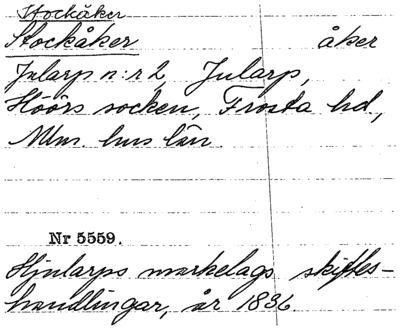 Stockåker
Stockåker åker
Jularp n:r 2, Jularp,
Höörs socken, Frosta hd,
Mlm. hus län.
Nr 5559.
Hjularps markelags skiftes-
handlingar, år 1836.